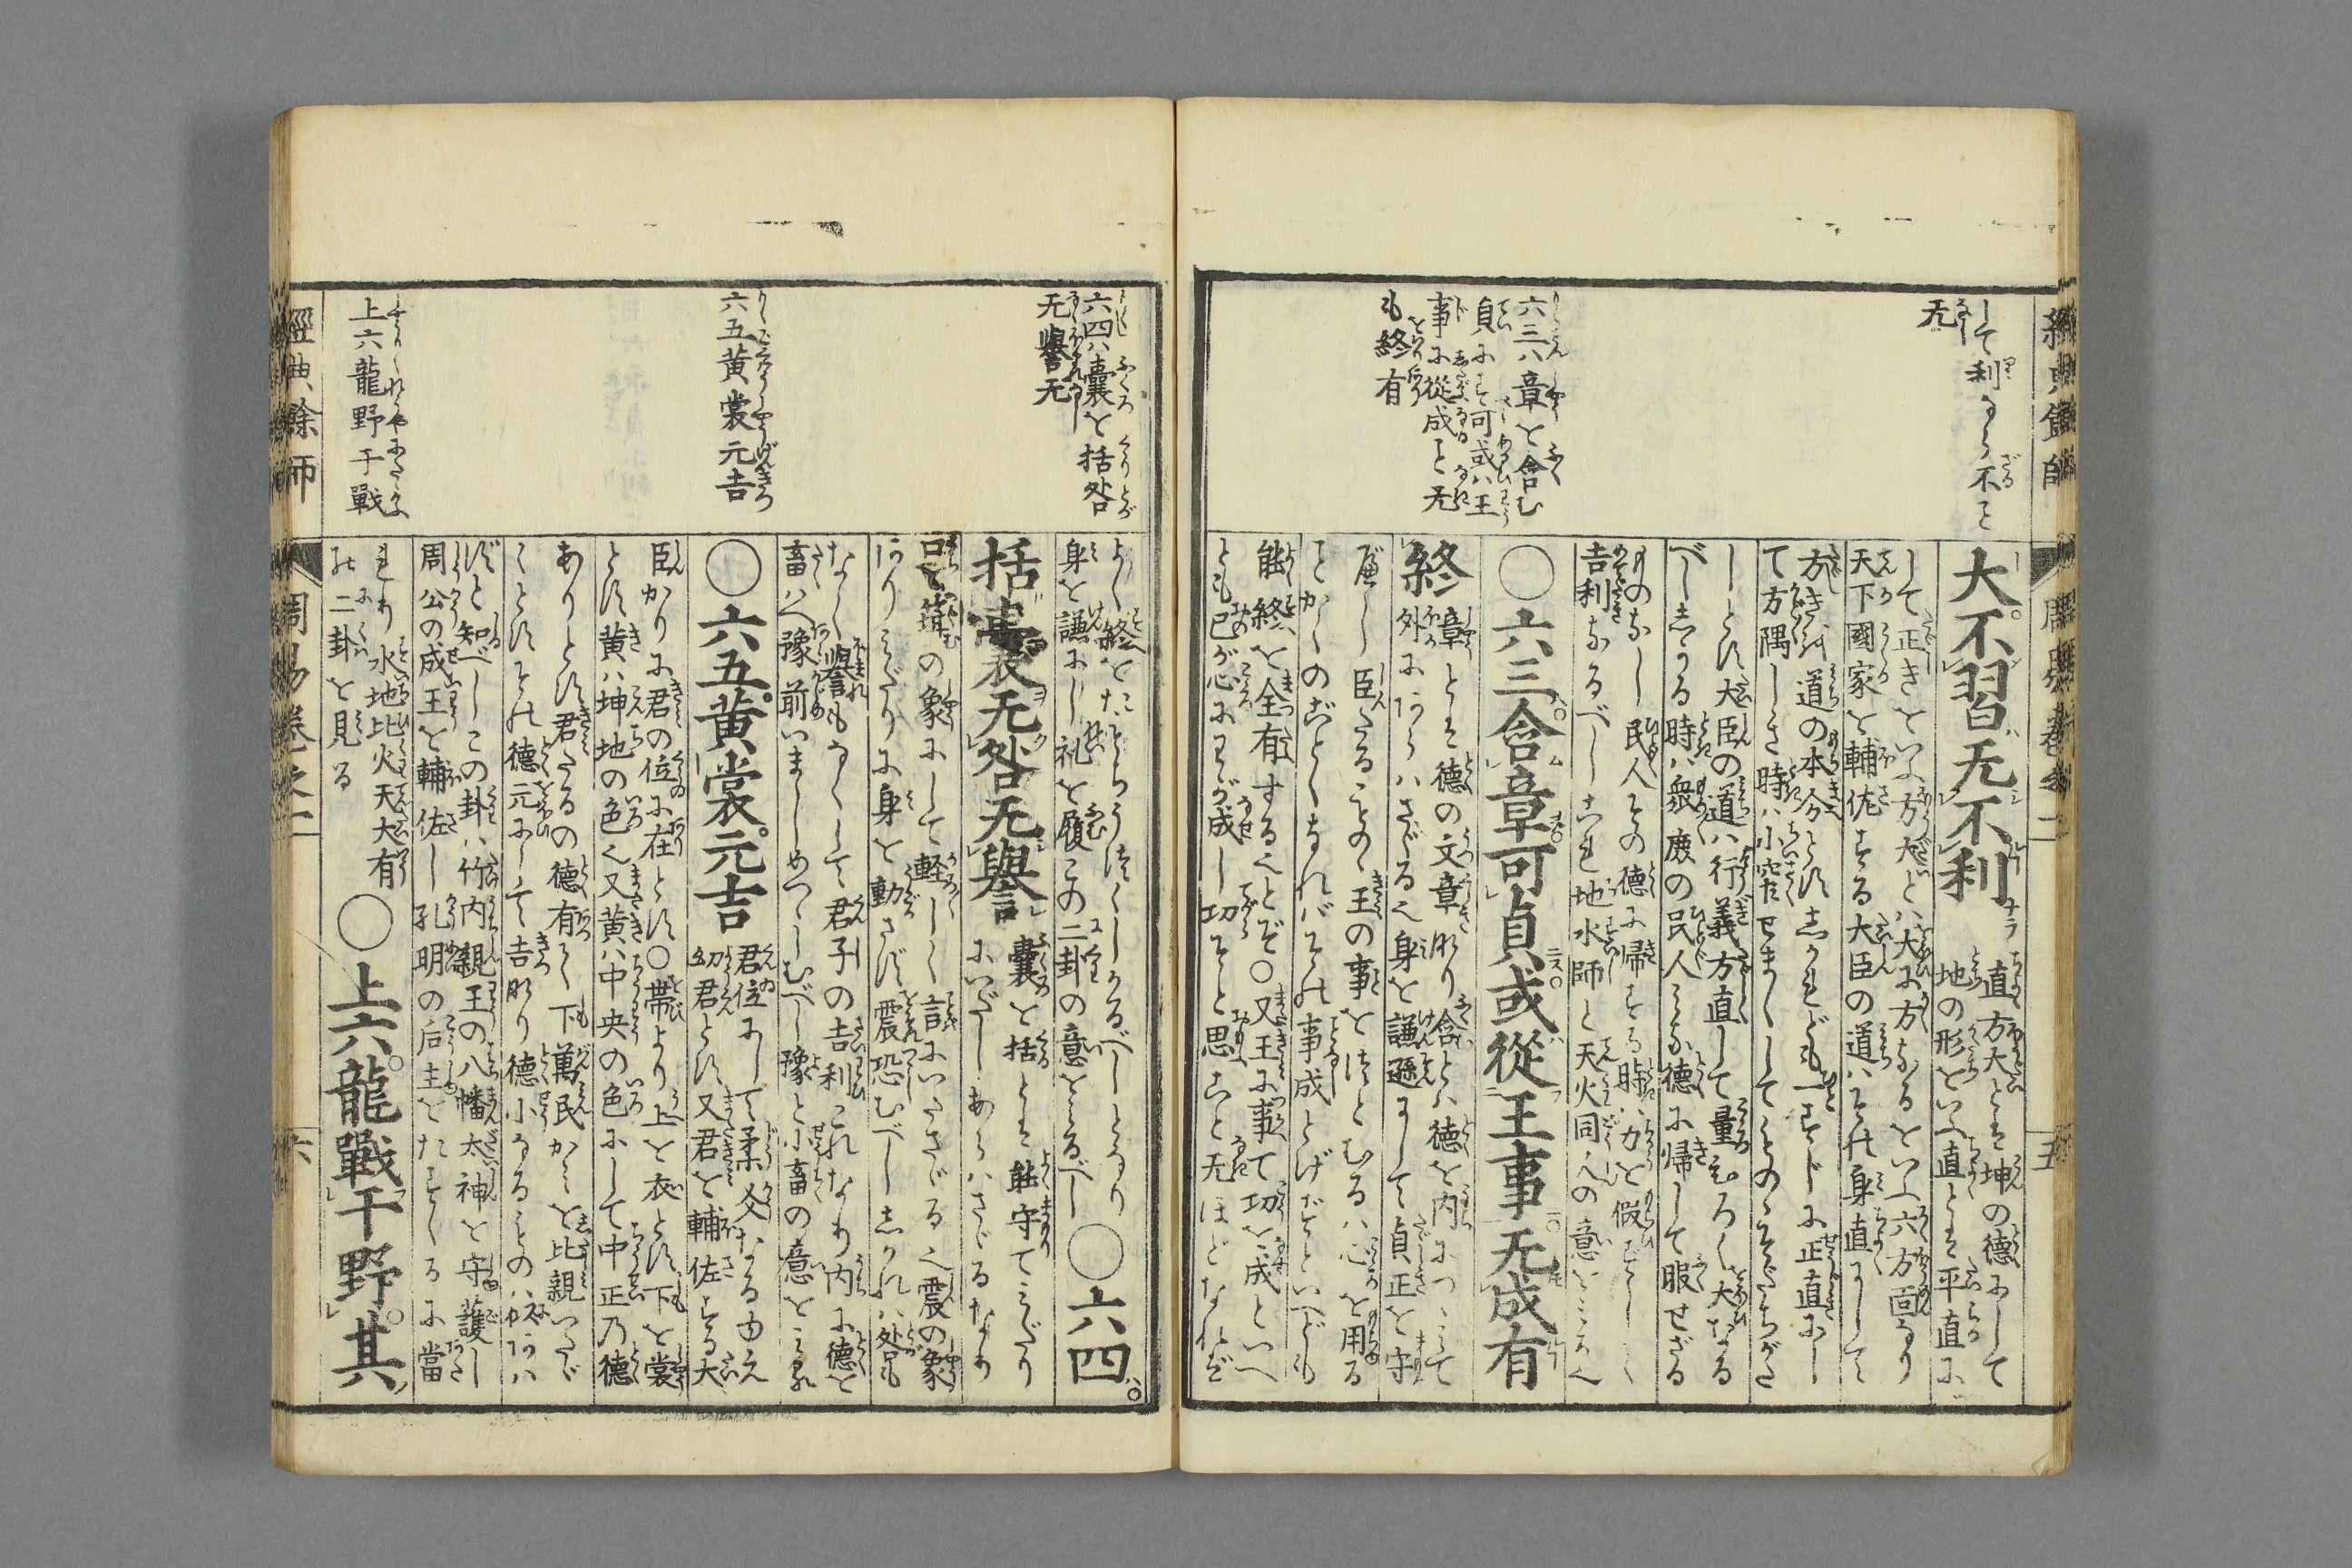 して利ならざること
无
大不習无不利
直方大とは坤の徳にして
地の形をいふ直とは平直に
して正きをいふ方大とは大に方なるをいふ六方面なり
天下國家を輔佐する大臣の道はその身直にして
方き道の本分とす しかれども一すじに正直に
て方隅しき時は小窄せまくしてものゝそだちがた
しとす大臣の道は行義方直して量ひろく大なる
べししかる時は衆庶の民人みな徳に帰して服せざる
ものなし民人その徳に帰する時は力を假ずして
吉利なるべしこれ地水師と天火同人の意をみるべ
六三ハ章を含む
貞にす可或ハ王
事に從成こと无
も終有
○六三含章可貞或從王事无成有
終
章とは徳の文章なり含とは徳を内につゝみて
外にあらハさゞる也身を謙遜にして貞正を守
べし臣たるもの王の事をつとむるハ心を用る
ことかくのごとくなればその事成とげずといへども
能終を全有するとぞ○又王に事て功を成といへ
ども己が心にわが成し功ぞと思こと无ほどなれば
よく終をたもつ
身を謙にし礼を履この二卦の意をみるべし
六四ハ囊を括咎
无譽无
○六四
括囊无咎无譽
囊を括とは能守てみだり
にいだしあらハさゞるなり
口を箝の象にして軽しく言にいださゞる也震の象
ありみだりに身を動さず震恐むべししかれハ咎も
なく譽もなくして君子の吉利これなり内に徳を
畜ハへ豫前いましめつゝしむべし豫と小畜の意をみる
六五黄裳元吉
○六五黄裳元吉
君位にして柔爻なるゆえ
幼君とす又君を輔佐する大
臣かりに君の位に在とす○帯より上を衣とす下を裳
とす黄ハ坤地の色也又黄ハ中央の色にして中正乃徳
ありとす君たるの徳有て下萬民かミを比親いたゞ
くことすその徳元にして吉なり徳小なるものハ
ずと知べしこの卦ハ竹内親王の八幡太神を守護し
周公の成王を輔佐し孔明の后主をたすくるに當
れり水地比火天大有
の二卦を見る
上六龍野于戰
○上六龍戰于野其
經典餘師
周易卷之二
五
經典餘師
周易卷之二
六